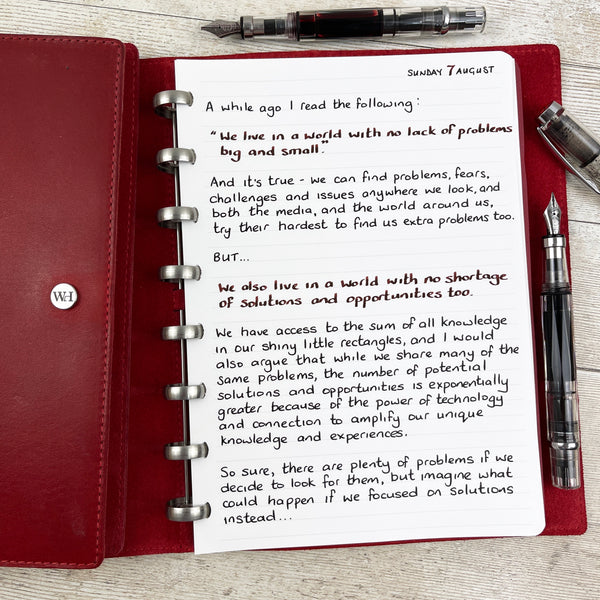 SUNDAY 7 AUGUST
A while ago I read the following:
"We live in a world with no lack of problems
big and small."
And it's true - we can find problems, fears,
challenges and issues anywhere we look, and
both the media, and the world around us,
try their hardest to find us extra problems too.
BUT...
We also live in a world with no shortage
of solutions and opportunities too.
We have access to the sum of all knowledge
in our shiny little rectangles, and I would
also argue that while we share many of the
same problems, the number of potential
solutions and opportunities is exponentially
greater because of the power of technology
and connection to amplify our unique
knowledge and experiences.
So sure, there are plenty of problems if we
decide to look for them, but imagine what
could happen if we focused on solutions
instead...
WH